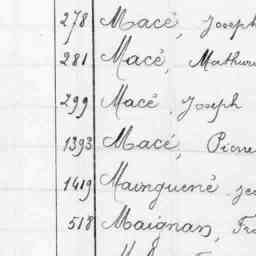 278 Macé, Joseph
281 Macé, Mathurin
299 Macé, Joseph
1393 Macé, Pierre
1419 Mainguené
518 Maignan,